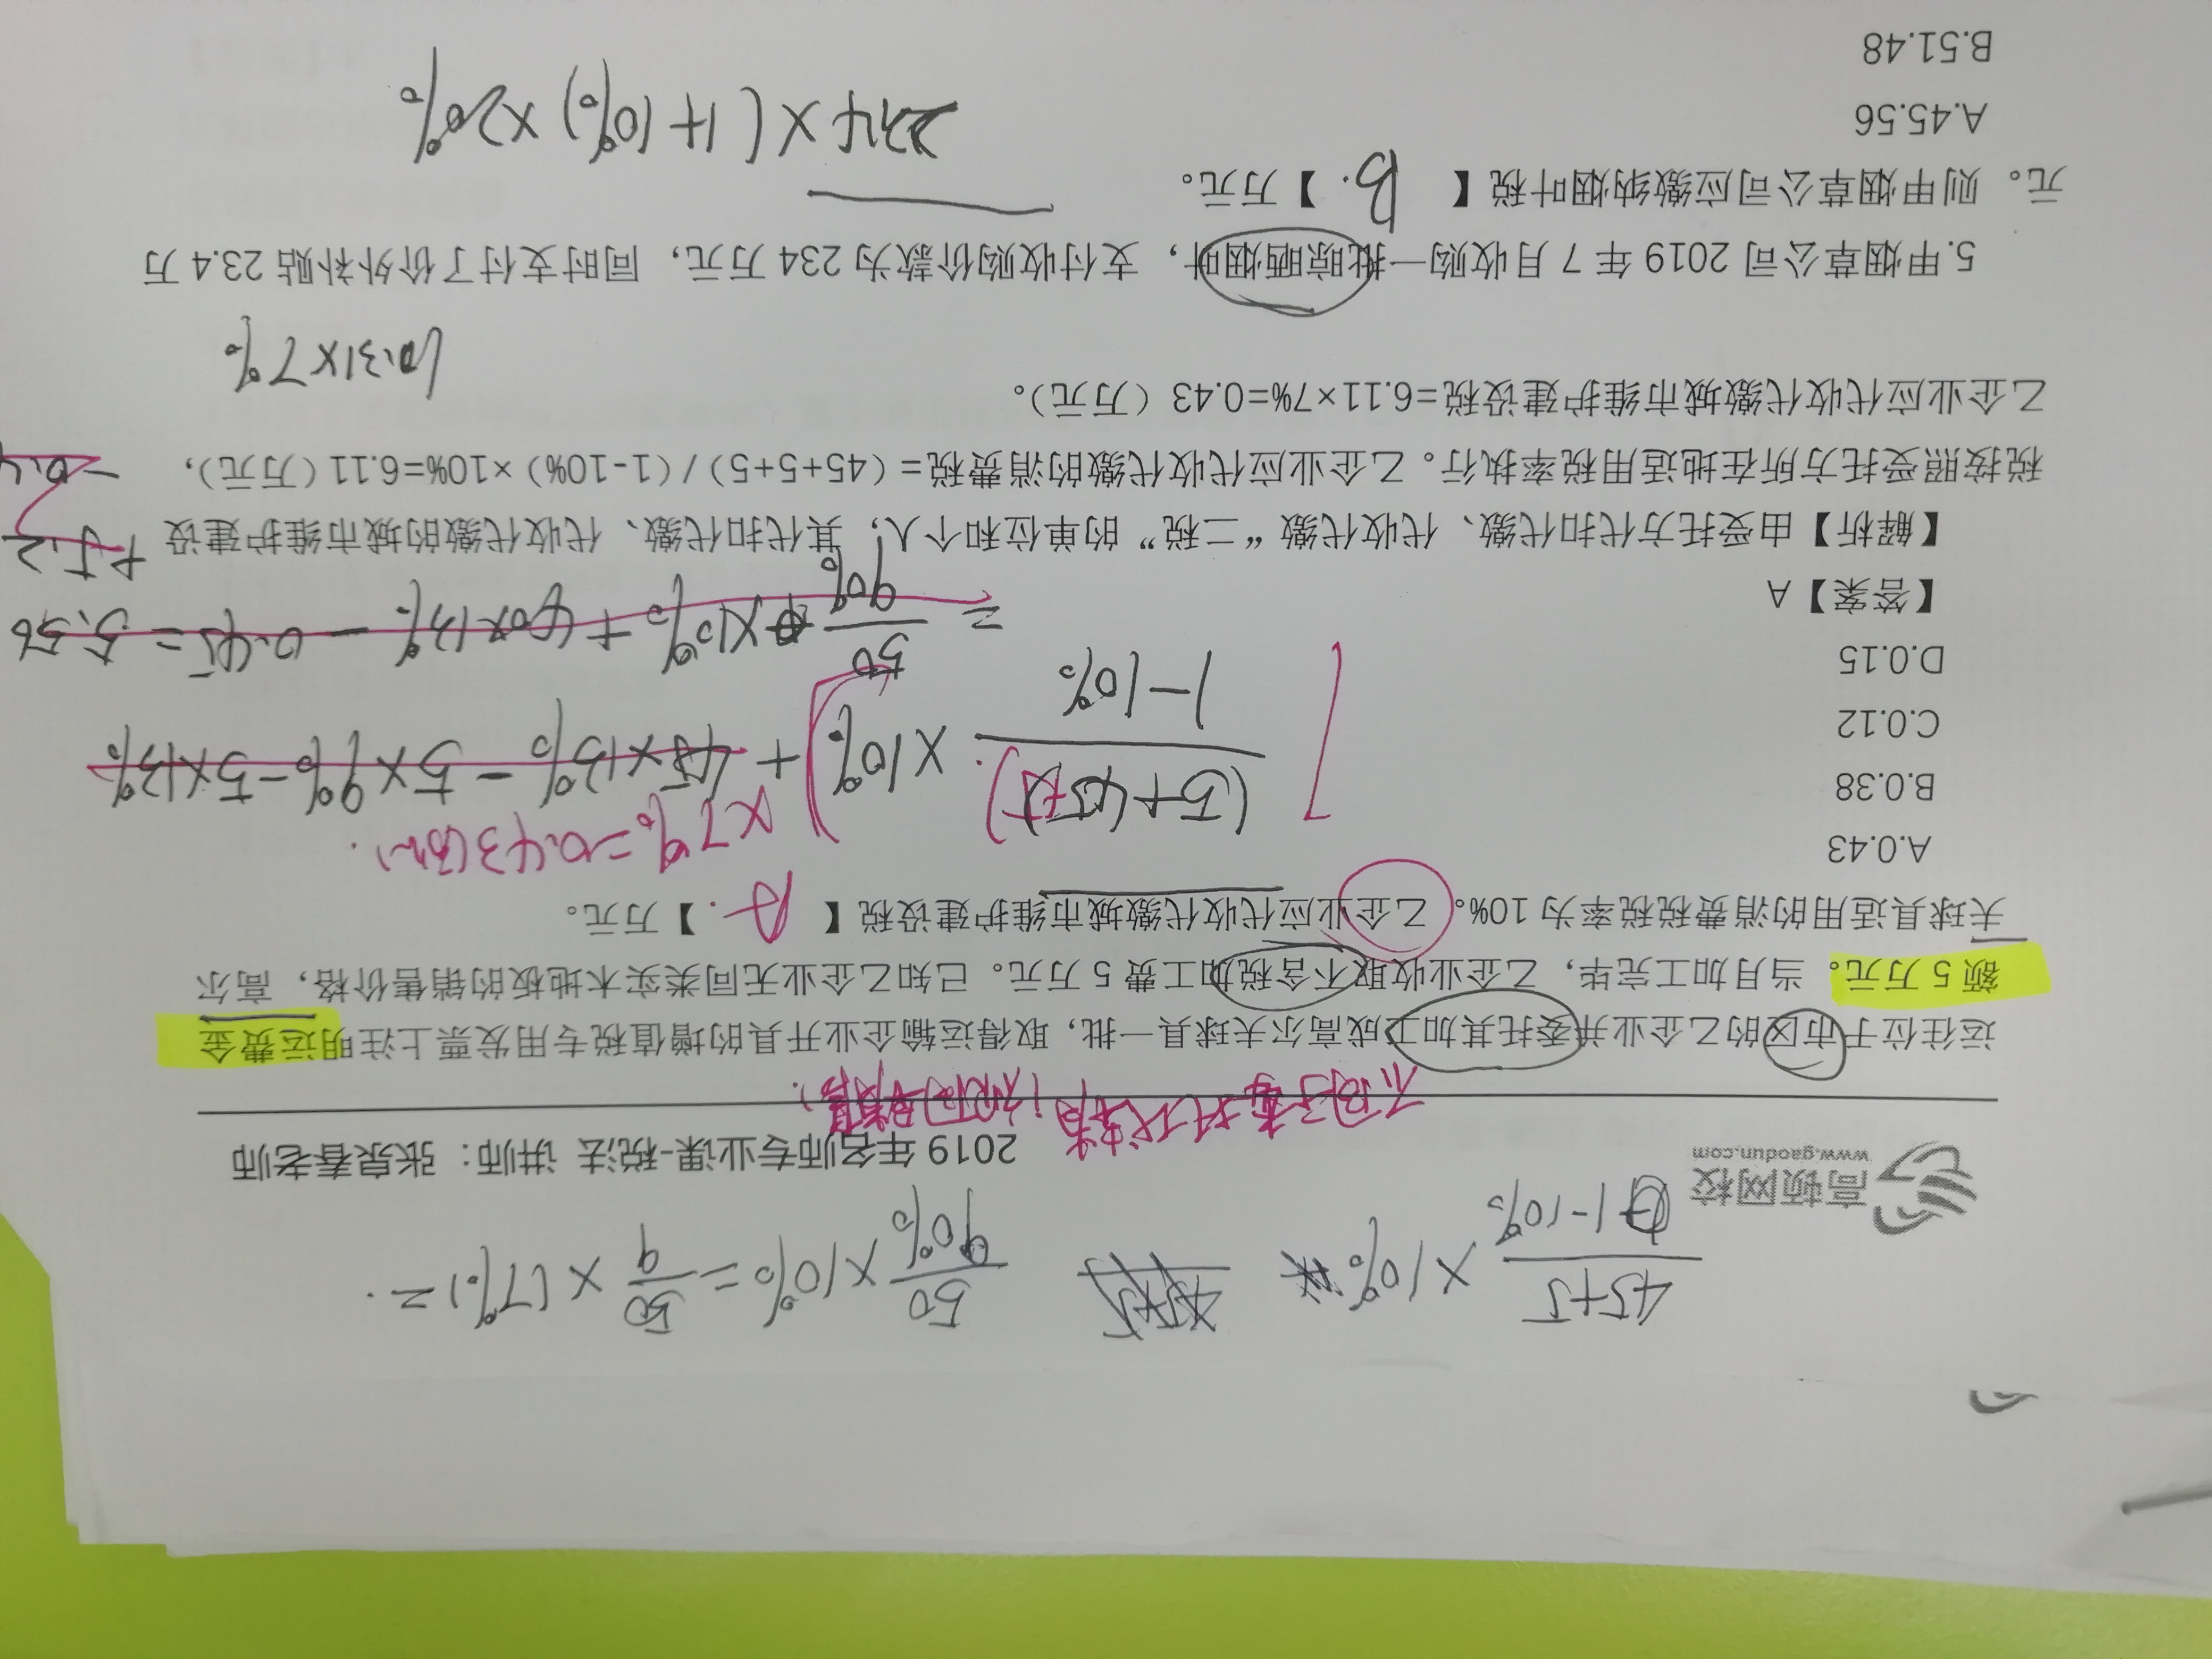 45+5
1-10%
×10%
50
90%
×10%=
50
9
×(7%)=
高顿网校
www.gaodun.com
2019 年名师专业课-税法 讲师：张泉春老师
运往位于市区的乙企业并委托其加工成高尔夫球具一批，取得运输企业开具的增值税专用发票上注明运费金
额 5 万元。当月加工完毕，乙企业收取不含税加工费 5 万元。已知乙企业无同类实木地板的销售价格，高尔
夫球具适用的消费税税率为 10%。乙企业应代收代缴城市维护建设税【 A. 】万元。
A.0.43
×7%=0.43(万元).
B.0.38
(5+45+5)
1-10%
×10%
+45×13%-5×9%-5×13%
C.0.12
D.0.15
=
50
90%
×10%+40×13%-0.45=5.56
【答案】A
+5.2
【解析】由受托方代扣代缴、代收代缴“二税”的单位和个人，其代扣代缴、代收代缴的城市维护建设
税按照受托方所在地适用税率执行。乙企业应代收代缴的消费税=（45+5+5）/（1-10%）×10%=6.11（万元），
乙企业应代收代缴城市维护建设税=6.11×7%=0.43（万元）。
5.甲烟草公司 2019 年 7 月收购一批晾晒烟叶，支付收购价款为 234 万元，同时支付了价外补贴 23.4 万
元。则甲烟草公司应缴纳烟叶税【 B. 】万元。
A.45.56
234×(1+10%)×20%
B.51.48